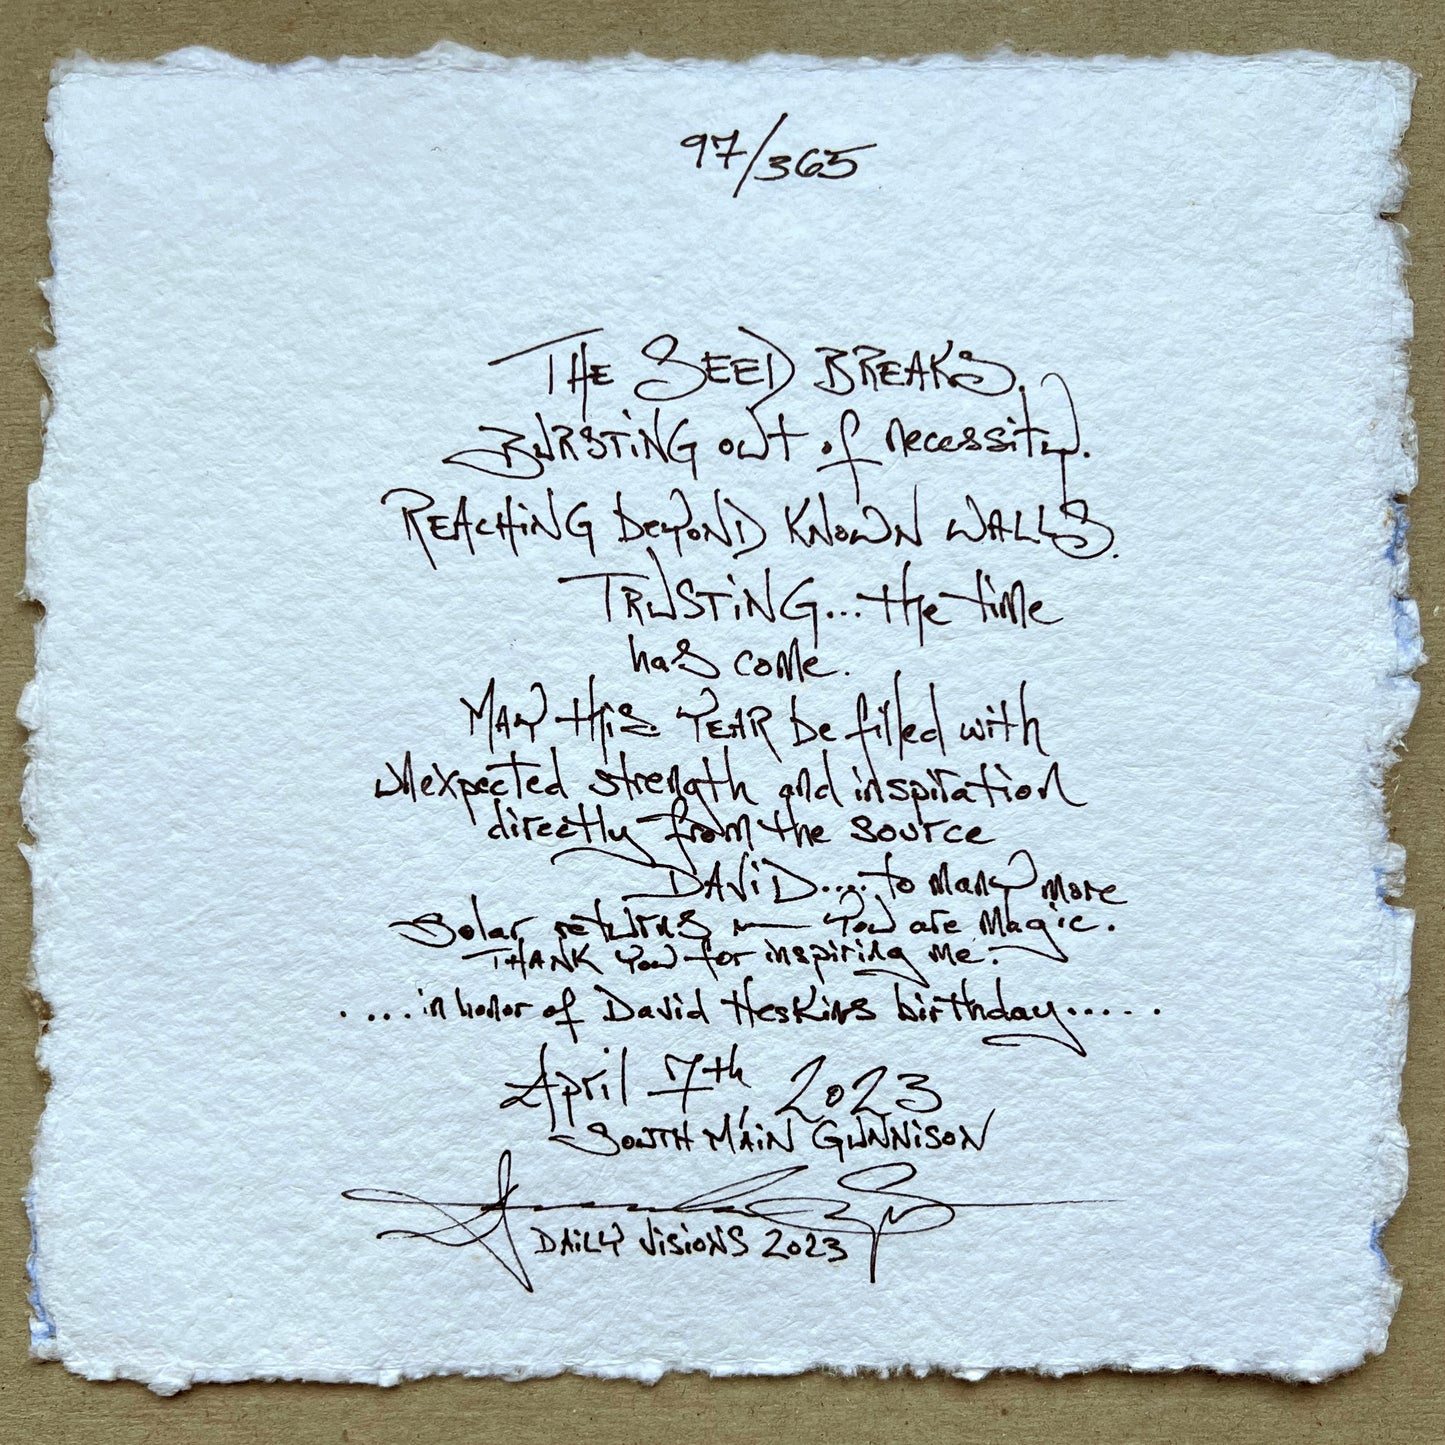 97/365
THE SEED BREAKS.
BURSTING out of necessity.
REACHING beyOND KNOWN WALLS.
TRUSTING...the time
has come.
MAY this YEAR be filled with
unexpected strength and inspiration
directly from the source
DAViD.... to many more
solar returns — You are magic.
THANK You for inspiring me.
....in honor of David HesKins birthday.....
April 7th, 2023
SOUTH MAIN GUNNISON
DAiLY ViSiONS 2023